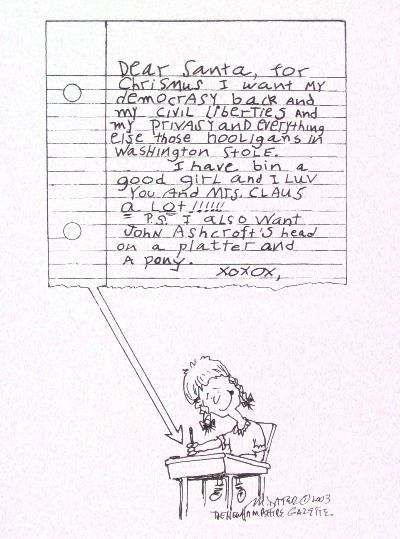 Dear Santa, for
Chrismus I want my
democrasy back and
my civil liberties and
my privasy and everything
else those hooligans in
Washington stole.
I have bin a
good girl and I luv
you and Mrs. Claus
a lot!!!!!!
P.S. I also want
John Ashcroft's head
on a platter and
a pony.
xoxox,
©2003
The New Hampshire Gazette.